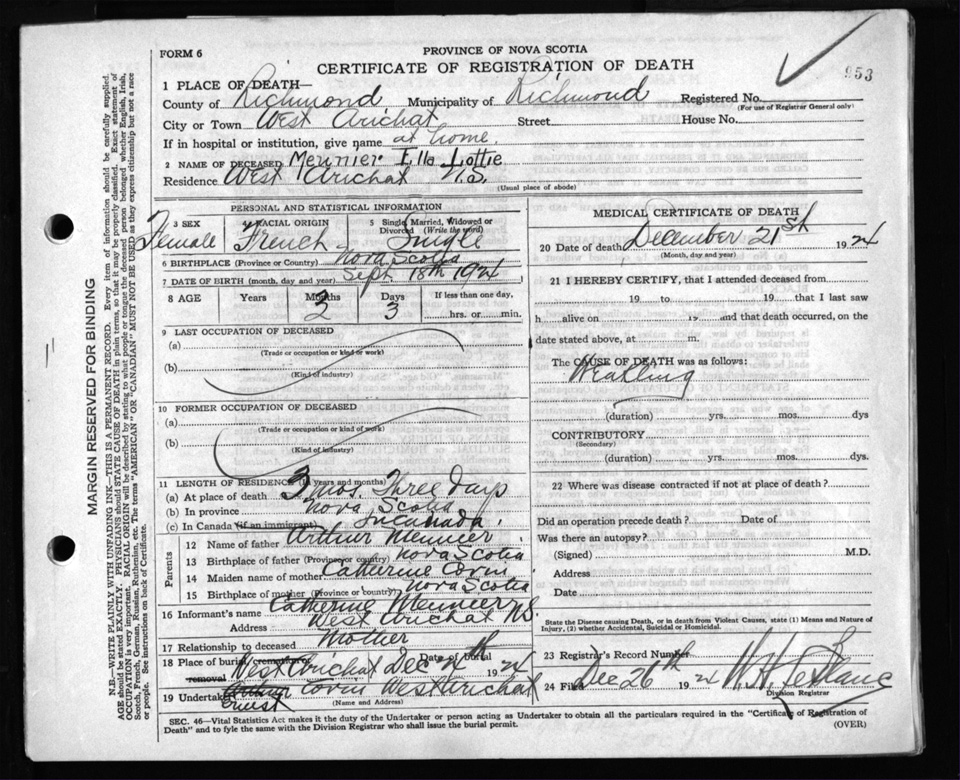 FORM 6
PROVINCE OF NOVA SCOTIA
CERTIFICATE OF REGISTRATION OF DEATH
953
1 PLACE OF DEATH—
County of Richmond, Municipality of Richmond Registered No.
(For use of Registrar General only)
City or Town West Arichat Street House No.
If in hospital or institution, give name at home.
2 NAME OF DECEASED Meunier Ella Lottie
Residence West Arichat N.S.
(Usual place of abode)
PERSONAL AND STATISTICAL INFORMATION
3 SEX Female
RACIAL ORIGIN French
5 Single, Married, Widowed or Divorced (Write the word) Single
6 BIRTHPLACE (Province or Country) Nova Scotia
7 DATE OF BIRTH (month, day and year) Sept 18th 1924
8 AGE Years Months 3 Days 3 If less than one day, hrs. or min.
9 LAST OCCUPATION OF DECEASED
(a)
(Trade or occupation or kind of work)
(b)
(Kind of industry)
10 FORMER OCCUPATION OF DECEASED
(a)
(Trade or occupation or kind of work)
(b)
(Kind of industry)
11 LENGTH OF RESIDENCE (in years and months)
(a) At place of death 3 mos. Three days
(b) In province Nova Scotia
(c) In Canada (if an immigrant) In Canada.
Parents
12 Name of father Arthur Meunier
13 Birthplace of father (Province or country) Nova Scotia
14 Maiden name of mother Catherine
15 Birthplace of mother (Province or country) Nova Scotia
16 Informant's name Catherine Meunier
Address West Arichat NS
17 Relationship to deceased Mother
18 Place of burial, cremation or removal West Arichat Date of burial Dec 1924
19 Undertaker Ernest West Arichat
(Name and Address)
MEDICAL CERTIFICATE OF DEATH
20 Date of death December 21st 1924
(Month, day and year)
21 I HEREBY CERTIFY, that I attended deceased from
19 to 19 that I last saw
h alive on 19 and that death occurred, on the
date stated above, at m.
The CAUSE OF DEATH was as follows:
(duration) yrs. mos. dys
CONTRIBUTORY
(Secondary)
(duration) yrs. mos. dys.
22 Where was disease contracted if not at place of death?
Did an operation precede death? Date of
Was there an autopsy?
(Signed) M.D.
Address
Date
State the Disease causing Death, or in death from Violent Causes, state (1) Means and Nature of Injury, (2) whether Accidental, Suicidal or Homicidal.
23 Registrar's Record Number
24 Filed Dec 26th 1924 LeBlanc
Division Registrar
SEC. 46—Vital Statistics Act makes it the duty of the Undertaker or person acting as Undertaker to obtain all the particulars required in the "Certificate of Registration of
Death" and to fyle the same with the Division Registrar who shall issue the burial permit.
(OVER)
MARGIN RESERVED FOR BINDING
N.B.—WRITE PLAINLY WITH UNFADING INK—THIS IS A PERMANENT RECORD. Every item of information should be carefully supplied.
AGE should be stated EXACTLY. PHYSICIANS should STATE CAUSE OF DEATH in plain terms, so that it may be properly classified. Exact statement of
OCCUPATION is very important. RACIAL ORIGIN will be described by stating to what people or tongue the deceased person belonged whether English, Irish,
Scotch, French, German, Russian, Ruthenian, etc. The terms "AMERICAN" OR "CANADIAN" MUST NOT BE USED as they express citizenship but not a race
or people. See instructions on back of Certificate.